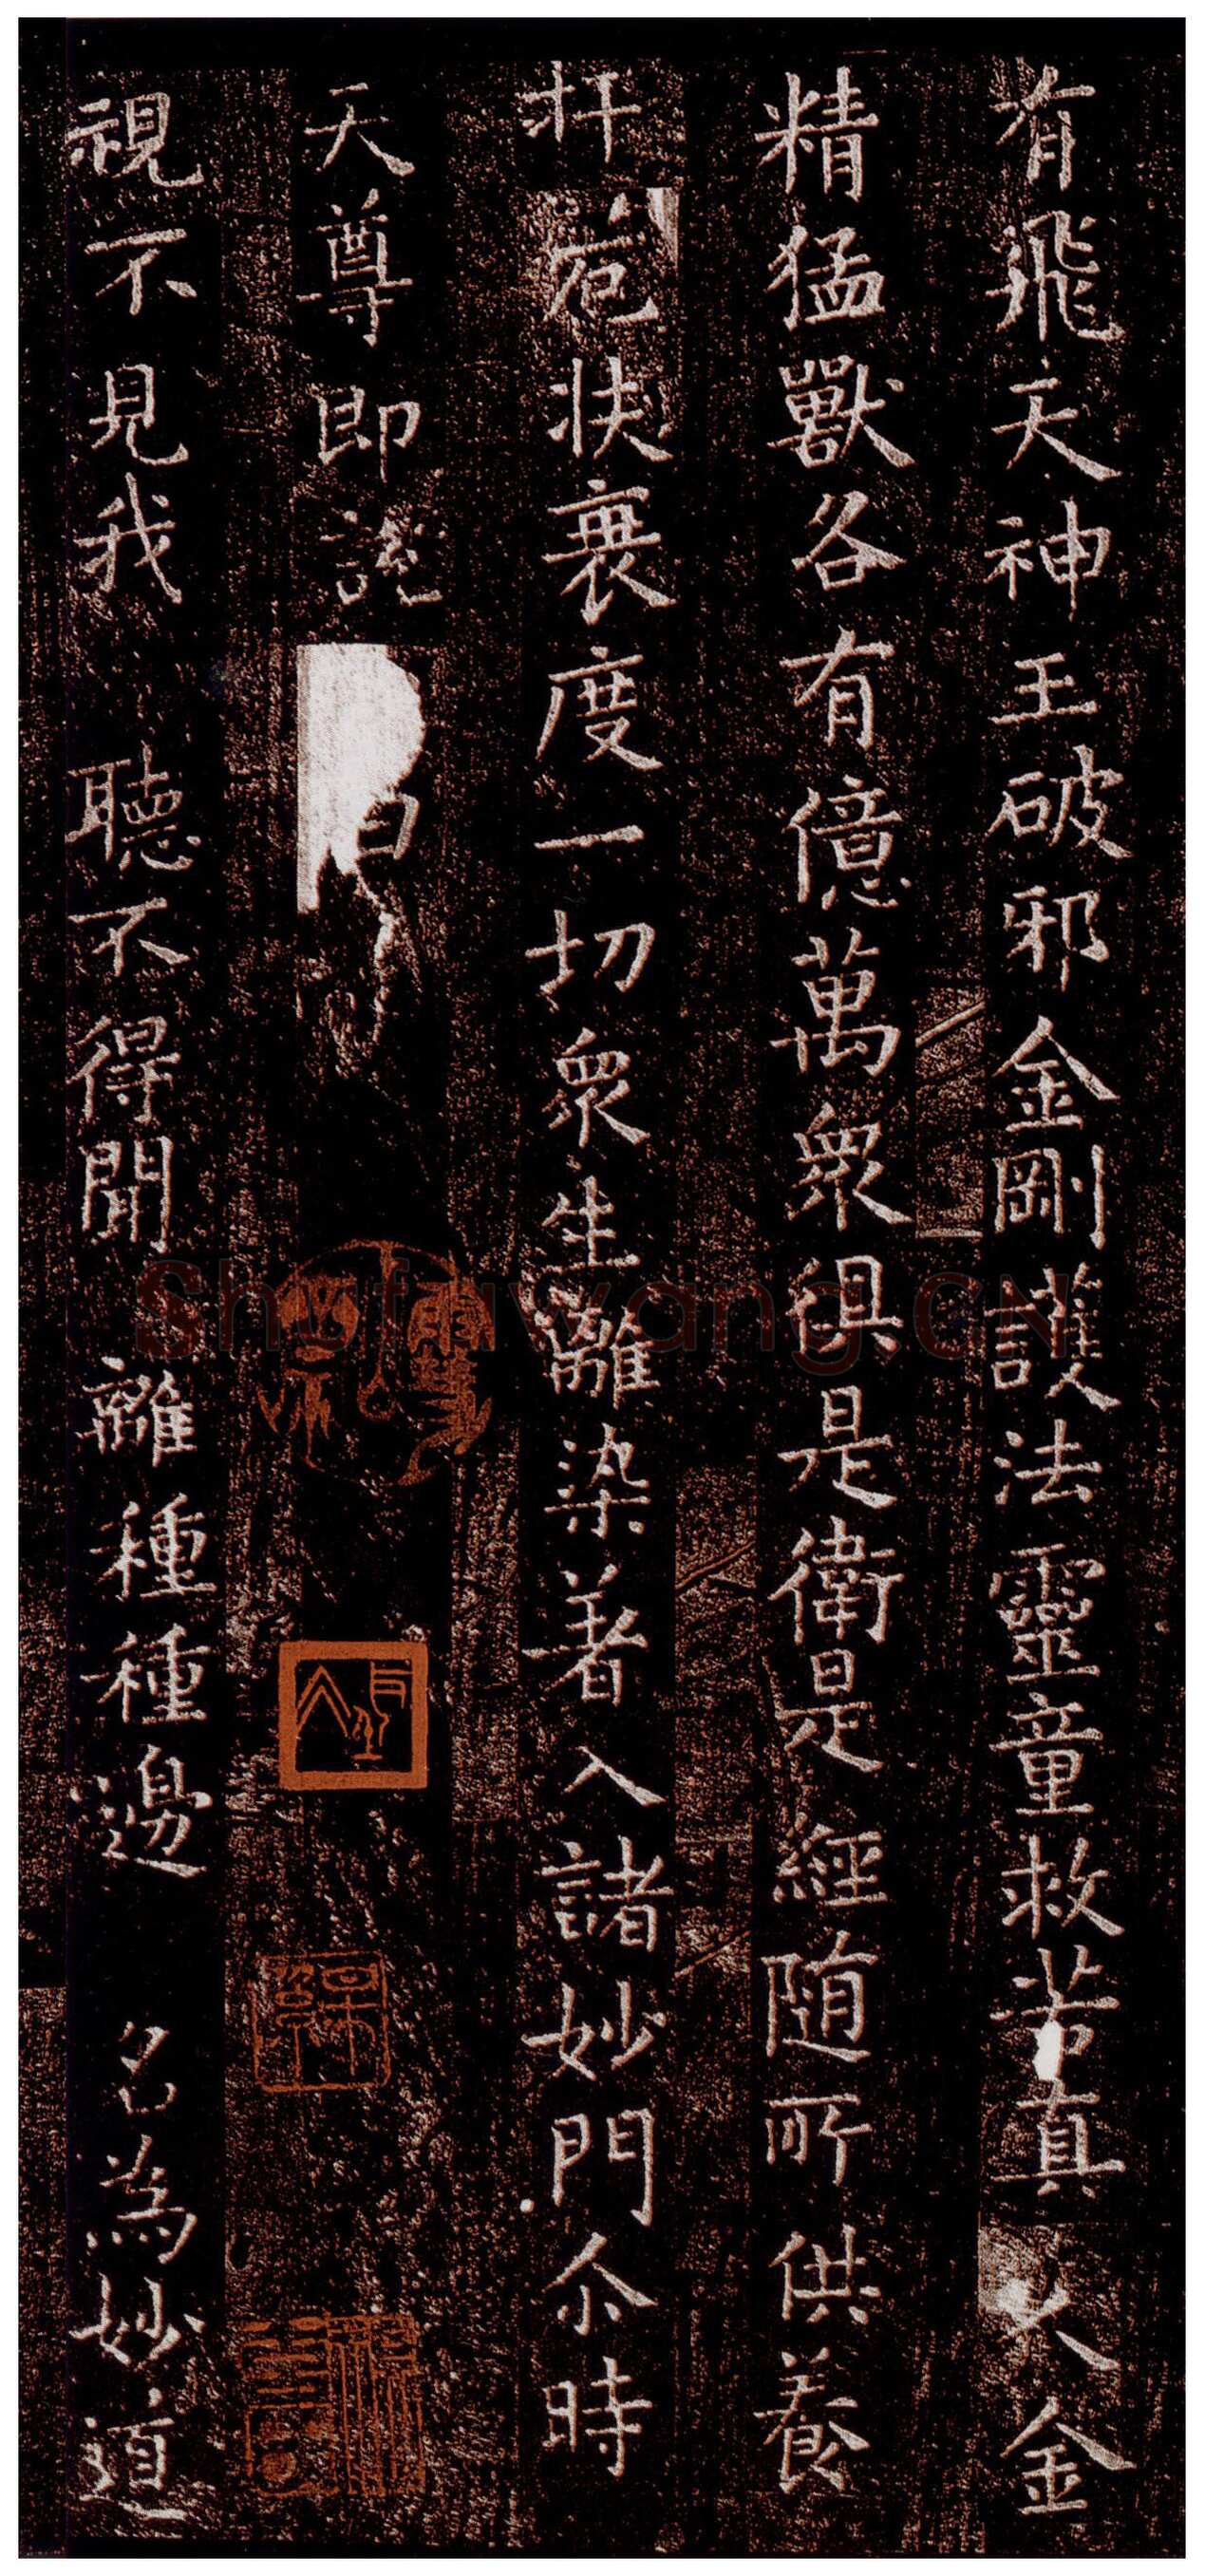 有飛天神王破邪金剛護法靈童救苦真人金
精猛獸各有億萬衆俱是衛是經随所供養
扞厄扶衰度一切衆生離染著入諸妙門尒時
天尊即說曰
視不見我聽不得聞離種種邊名為妙道
Shufawang.CN